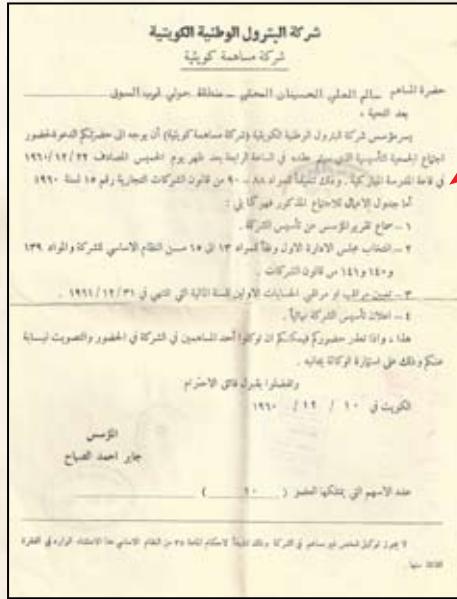 شركة البترول الوطنية الكويتية
شركة مساهمة كويتية
حضرة المساهم سالم العلي الحسينان المحلي ــ منطقة حولي قرب السوق
بعد التحية ،
يسر مؤسس شركة البترول الوطنية الكويتية (شركة مساهمة كويتية) أن يوجه الى حضرتكم الدعوة لحضور
اجتماع الجمعية التأسيسية الذي سيتم عقده في الساعة الرابعة بعد ظهر يوم الخميس المصادف ١٩٦٠/١٢/٢٢
في قاعة المدرسة المباركية . وذلك تنفيذاً للمواد ٨٨ ــ ٩٠ من قانون الشركات التجارية رقم ١٥ لسنة ١٩٦٠
أما جدول الاعمال للاجتماع المذكور فهو كما يلي :
١ ــ سماع تقرير المؤسس عن تأسيس الشركة .
٢ ــ انتخاب مجلس الادارة الاول وفقاً للمواد ١٣ الى ١٥ من النظام الاساسي للشركة والمواد ١٣٩
و١٤٠ و١٤١ من قانون الشركات .
٣ ــ تعيين مراقب او مراقبي الحسابات الاولين للسنة المالية التي تنتهي في ١٩٦١/١٢/٣١ .
٤ ــ اعلان تأسيس الشركة نهائياً .
هذا ، واذا تعذر حضوركم فيمكنكم ان توكلوا أحد المساهمين في الشركة في الحضور والتصويت نيابة
عنكم وذلك على استمارة الوكالة بجانبه .
وتفضلوا بقبول فائق الاحترام
الكويت في ١٠ / ١٢ / ١٩٦٠
المؤسس
جابر احمد الصباح
عدد الاسهم التي يمتلكها العضو ( ١٠ )
لا يجوز توكيل شخص غير مساهم في الشركة وذلك تطبيقاً لاحكام المادة ٣٥ من النظام الاساسي عدا الاستثناء الوارد في الفقرة
الثالثة منها .